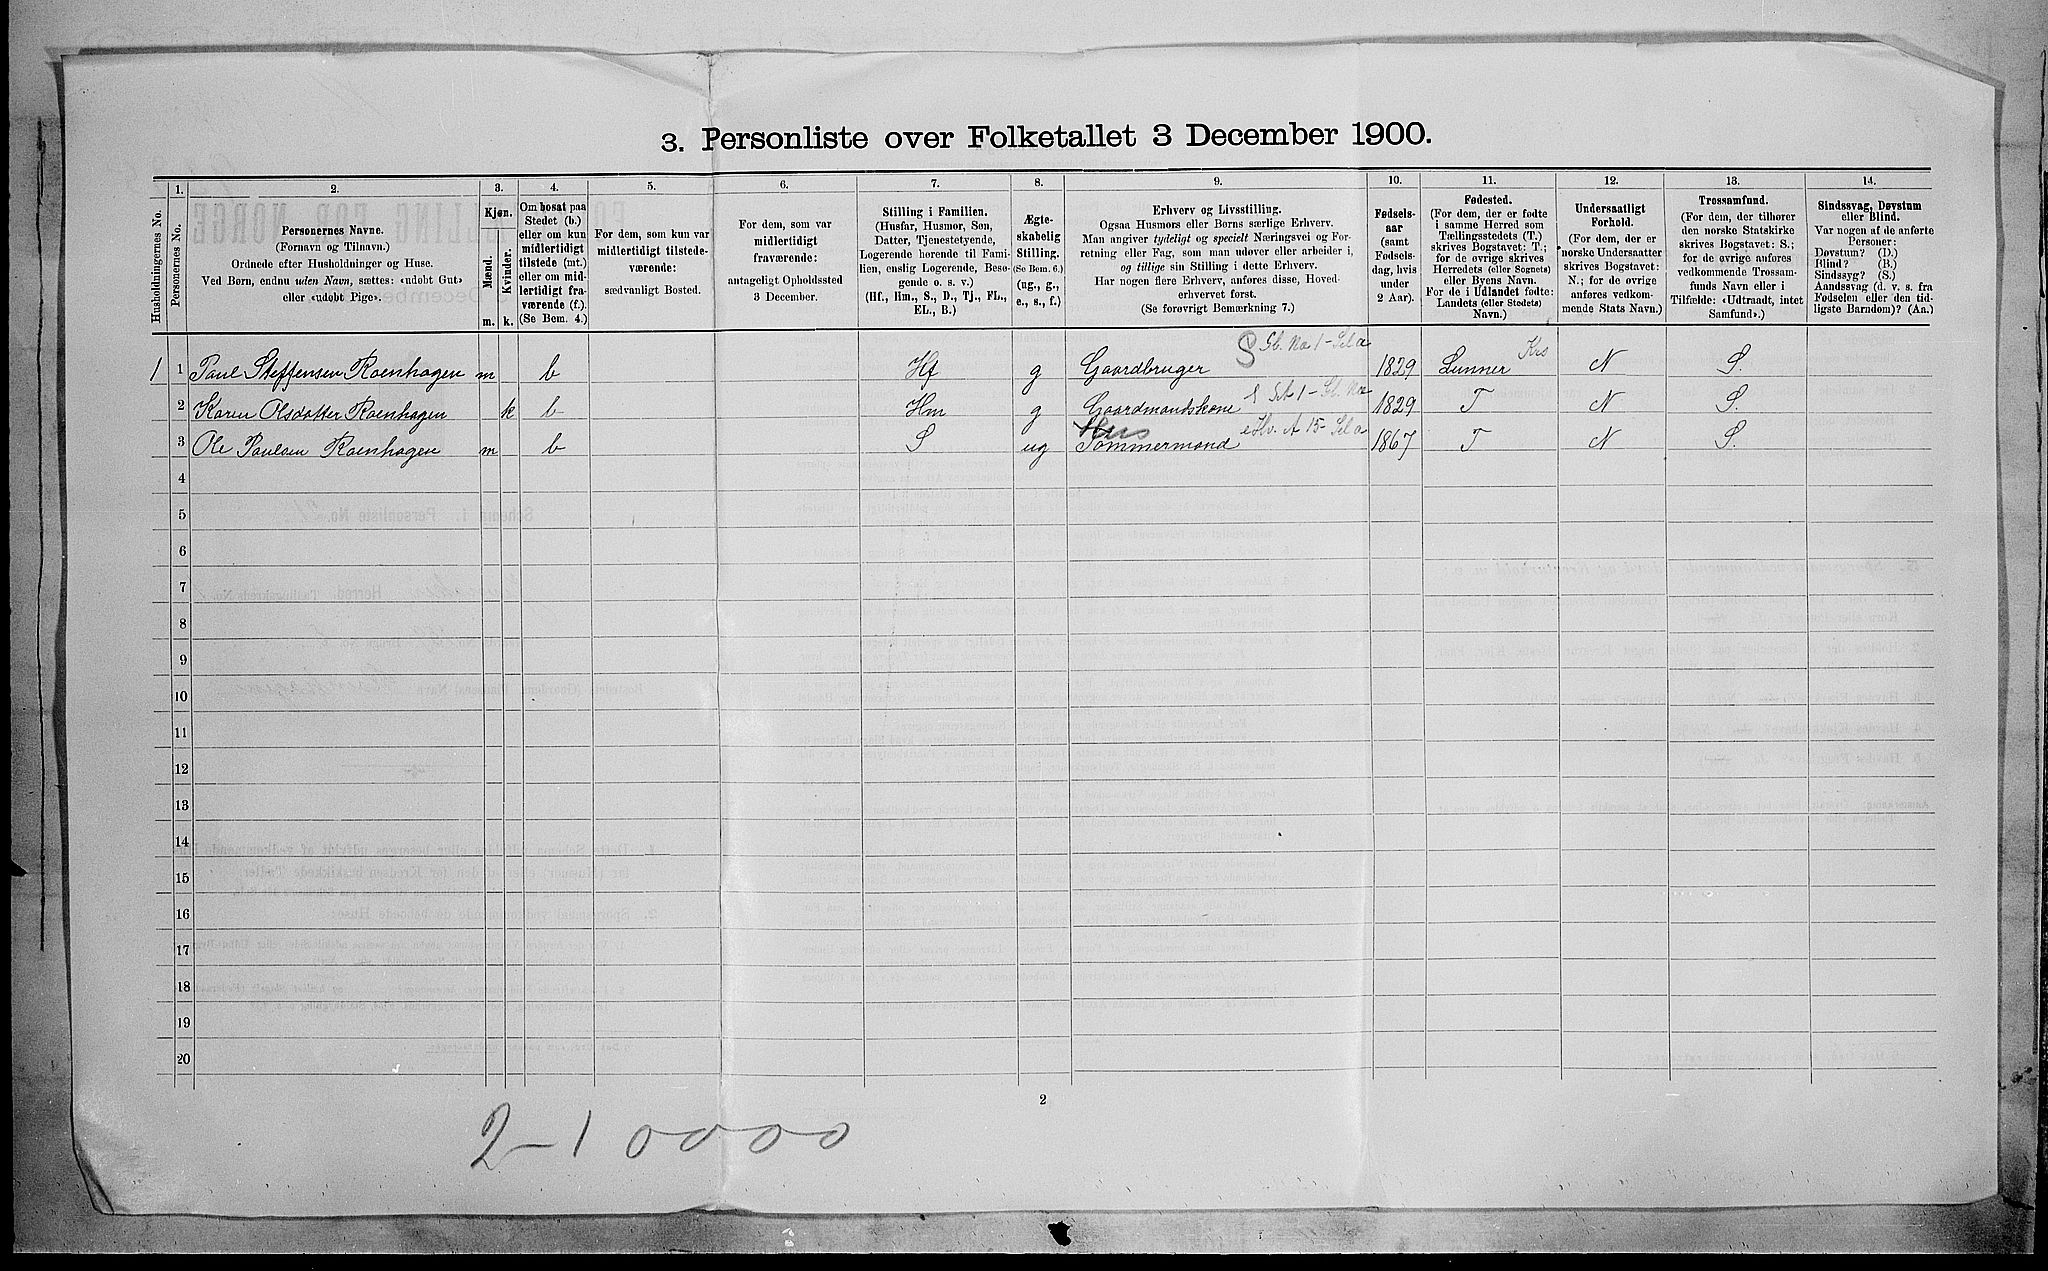 3. Personliste over Folketallet 3 December 1900.
1. 2. 3. 4. 5. 6. 7. 8. 9. 10. 11. 12. 13. 14.
Husholdningernes No.
Personernes No.
Personernes Navne.
(Fornavn og Tilnavn.)
Ordnede efter Husholdninger og Huse.
Ved Børn, endnu uden Navn, sættes: «udøbt Gut»
eller «udøbt Pige».
Kjøn.
Mænd.
Kvinder.
m. k.
Om bosat paa
Stedet (b.)
eller om kun
midlertidigt
tilstede (mt.)
eller om mid-
lertidigt fra-
værende (f.).
(Se Bem. 4.)
For dem, som kun var
midlertidigt tilstede-
værende:
sædvanligt Bosted.
For dem, som var
midlertidigt
fraværende:
antageligt Opholdssted
3 December.
Stilling i Familien.
(Husfar, Husmor, Søn,
Datter, Tjenestetyende,
Logerende hørende til Fami-
lien, enslig Logerende, Besø-
gende o. s. v.)
(Hf., Hm., S., D., Tj., FL.,
EL., B.)
Ægte-
skabelig
Stilling.
(Se Bem. 6.)
(ug., g.,
e., s., f.)
Erhverv og Livsstilling.
Ogsaa Husmors eller Børns særlige Erhverv.
Man angiver tydeligt og specielt Næringsvei og For-
retning eller Fag, som man udøver eller arbeider i,
og tillige sin Stilling i dette Erhverv.
Har nogen flere Erhverv, anføres disse, Hoved-
erhvervet først.
(Se forøvrigt Bemærkning 7.)
Fødsels-
aar
(samt
Fødsels-
dag, hvis
under
2 Aar).
Fødested.
(For dem, der er fødte
i samme Herred som
Tællingsstedets (T.)
skrives Bogstavet: T.;
for de øvrige skrives
Herredets (eller Sognets)
eller Byens Navn.
For de i Udlandet fødte:
Landets (eller Stedets)
Navn.)
Undersaatligt
Forhold.
(For dem, der er
norske Undersaatter
skrives Bogstavet:
N.; for de øvrige
anføres vedkom-
mende Stats Navn.)
Trossamfund.
(For dem, der tilhører
den norske Statskirke
skrives Bogstavet: S.;
for de øvrige anføres
vedkommende Trossam-
funds Navn eller i
Tilfælde: «Udtraadt, intet
Samfund».)
Sindssvag, Døvstum
eller Blind.
Var nogen af de anførte
Personer:
Døvstum? (D.)
Blind? (B.)
Sindssyg? (S.)
Aandssvag (d. v. s. fra
Fødselen eller den tid-
ligste Barndom)? (Aa.)
1 1 Paul Steffensen Roenhagen m b Hf g Gaardbruger S Gb. No 1 - Sel a 1829 Lunner Krs N S.
2 Karen Olsdatter Roenhagen k b Hm g Gaardmandskone 1829 T N S.
3 Ole Paulsen Roenhagen m b S ug Hus Tømmermand 1867 T N S.
4
5
6
7
8
9
10
11
12
13
14
15
16
17
18
19
20
2
2-1 0000